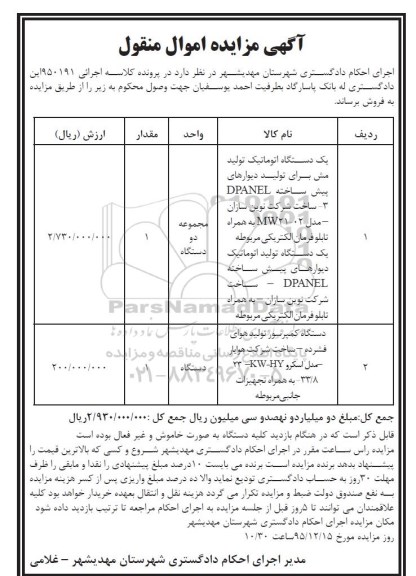 آگهی مزایده اموال منقول
اجرای احکام دادگستری شهرستان مهدیشهر در نظر دارد در پرونده کلاسه اجرائی ۹۵۰۱۹۱این
دادگستری له بانک پاسارگاد بطرفیت احمد یوسفیان جهت وصول محکوم به زیر را از طریق مزایده
به فروش برساند.
ردیف نام کالا واحد مقدار ارزش (ریال)
یک دستگاه اتوماتیک تولید
مش برای تولید دیوارهای
پیش ساخته DPANEL
۳- ساخت شرکت نوین سازان
–مدل MW۲۱۰۲ به همراه
تابلو فرمان الکتریکی مربوطه
یک دستگاه تولید اتوماتیک
دیوارهای پیش ساخته
DPANEL – ساخت
شرکت نوین سازان –به همراه
تابلو فرمان الکتریکی مربوطه
۱ مجموعه دو دستگاه ۱ ۲/۷۳۰/۰۰۰/۰۰۰
دستگاه کمپرسور تولید هوای
فشرده – ساخت شرکت هوایار
–مدل اسکرو KW-HY– ۲۳
۳۳/۸- به همراه تجهیزات
جانبی مربوطه
۲ دستگاه ۱ ۲۰۰/۰۰۰/۰۰۰
ParsNamadData
۰۲۱-۸۸۳۴۹۶۷۰-۵
جمع کل:مبلغ دو میلیاردو نهصدو سی میلیون ریال جمع کل :۲/۹۳۰/۰۰۰/۰۰۰ریال
قابل ذکر است که در هنگام بازدید کلیه دستگاه به صورت خاموش و غیر فعال بوده است
مزایده راس ساعت مقرر در اجرای احکام دادگستری مهدیشهر شروع و کسی که بالاترین قیمت را
پیشنهاد بدهد برنده مزایده است برنده می بایست ۱۰درصد مبلغ پیشنهادی را نقدا و مابقی را ظرف
مهلت ۳۰روز به حساب دادگستری تودیع نماید والا ده درصد مبلغ واریزی پس از کسر هزینه مزایده
به نفع صندوق دولت ضبط و مزایده تکرار می گردد هزینه نقل و انتقال بعهده خریدار خواهد بود کلیه
علاقمندان می توانند تا ۵روز قبل از جلسه مزایده به اجرای احکام مراجعه تا ترتیب بازدید داده شود
مکان مزایده اجرای احکام دادگستری شهرستان مهدیشهر
روز مزایده مورخ ۹۵/۱۲/۱۵ساعت ۱۰/۳۰
مدیر اجرای احکام دادگستری شهرستان مهدیشهر – غلامی